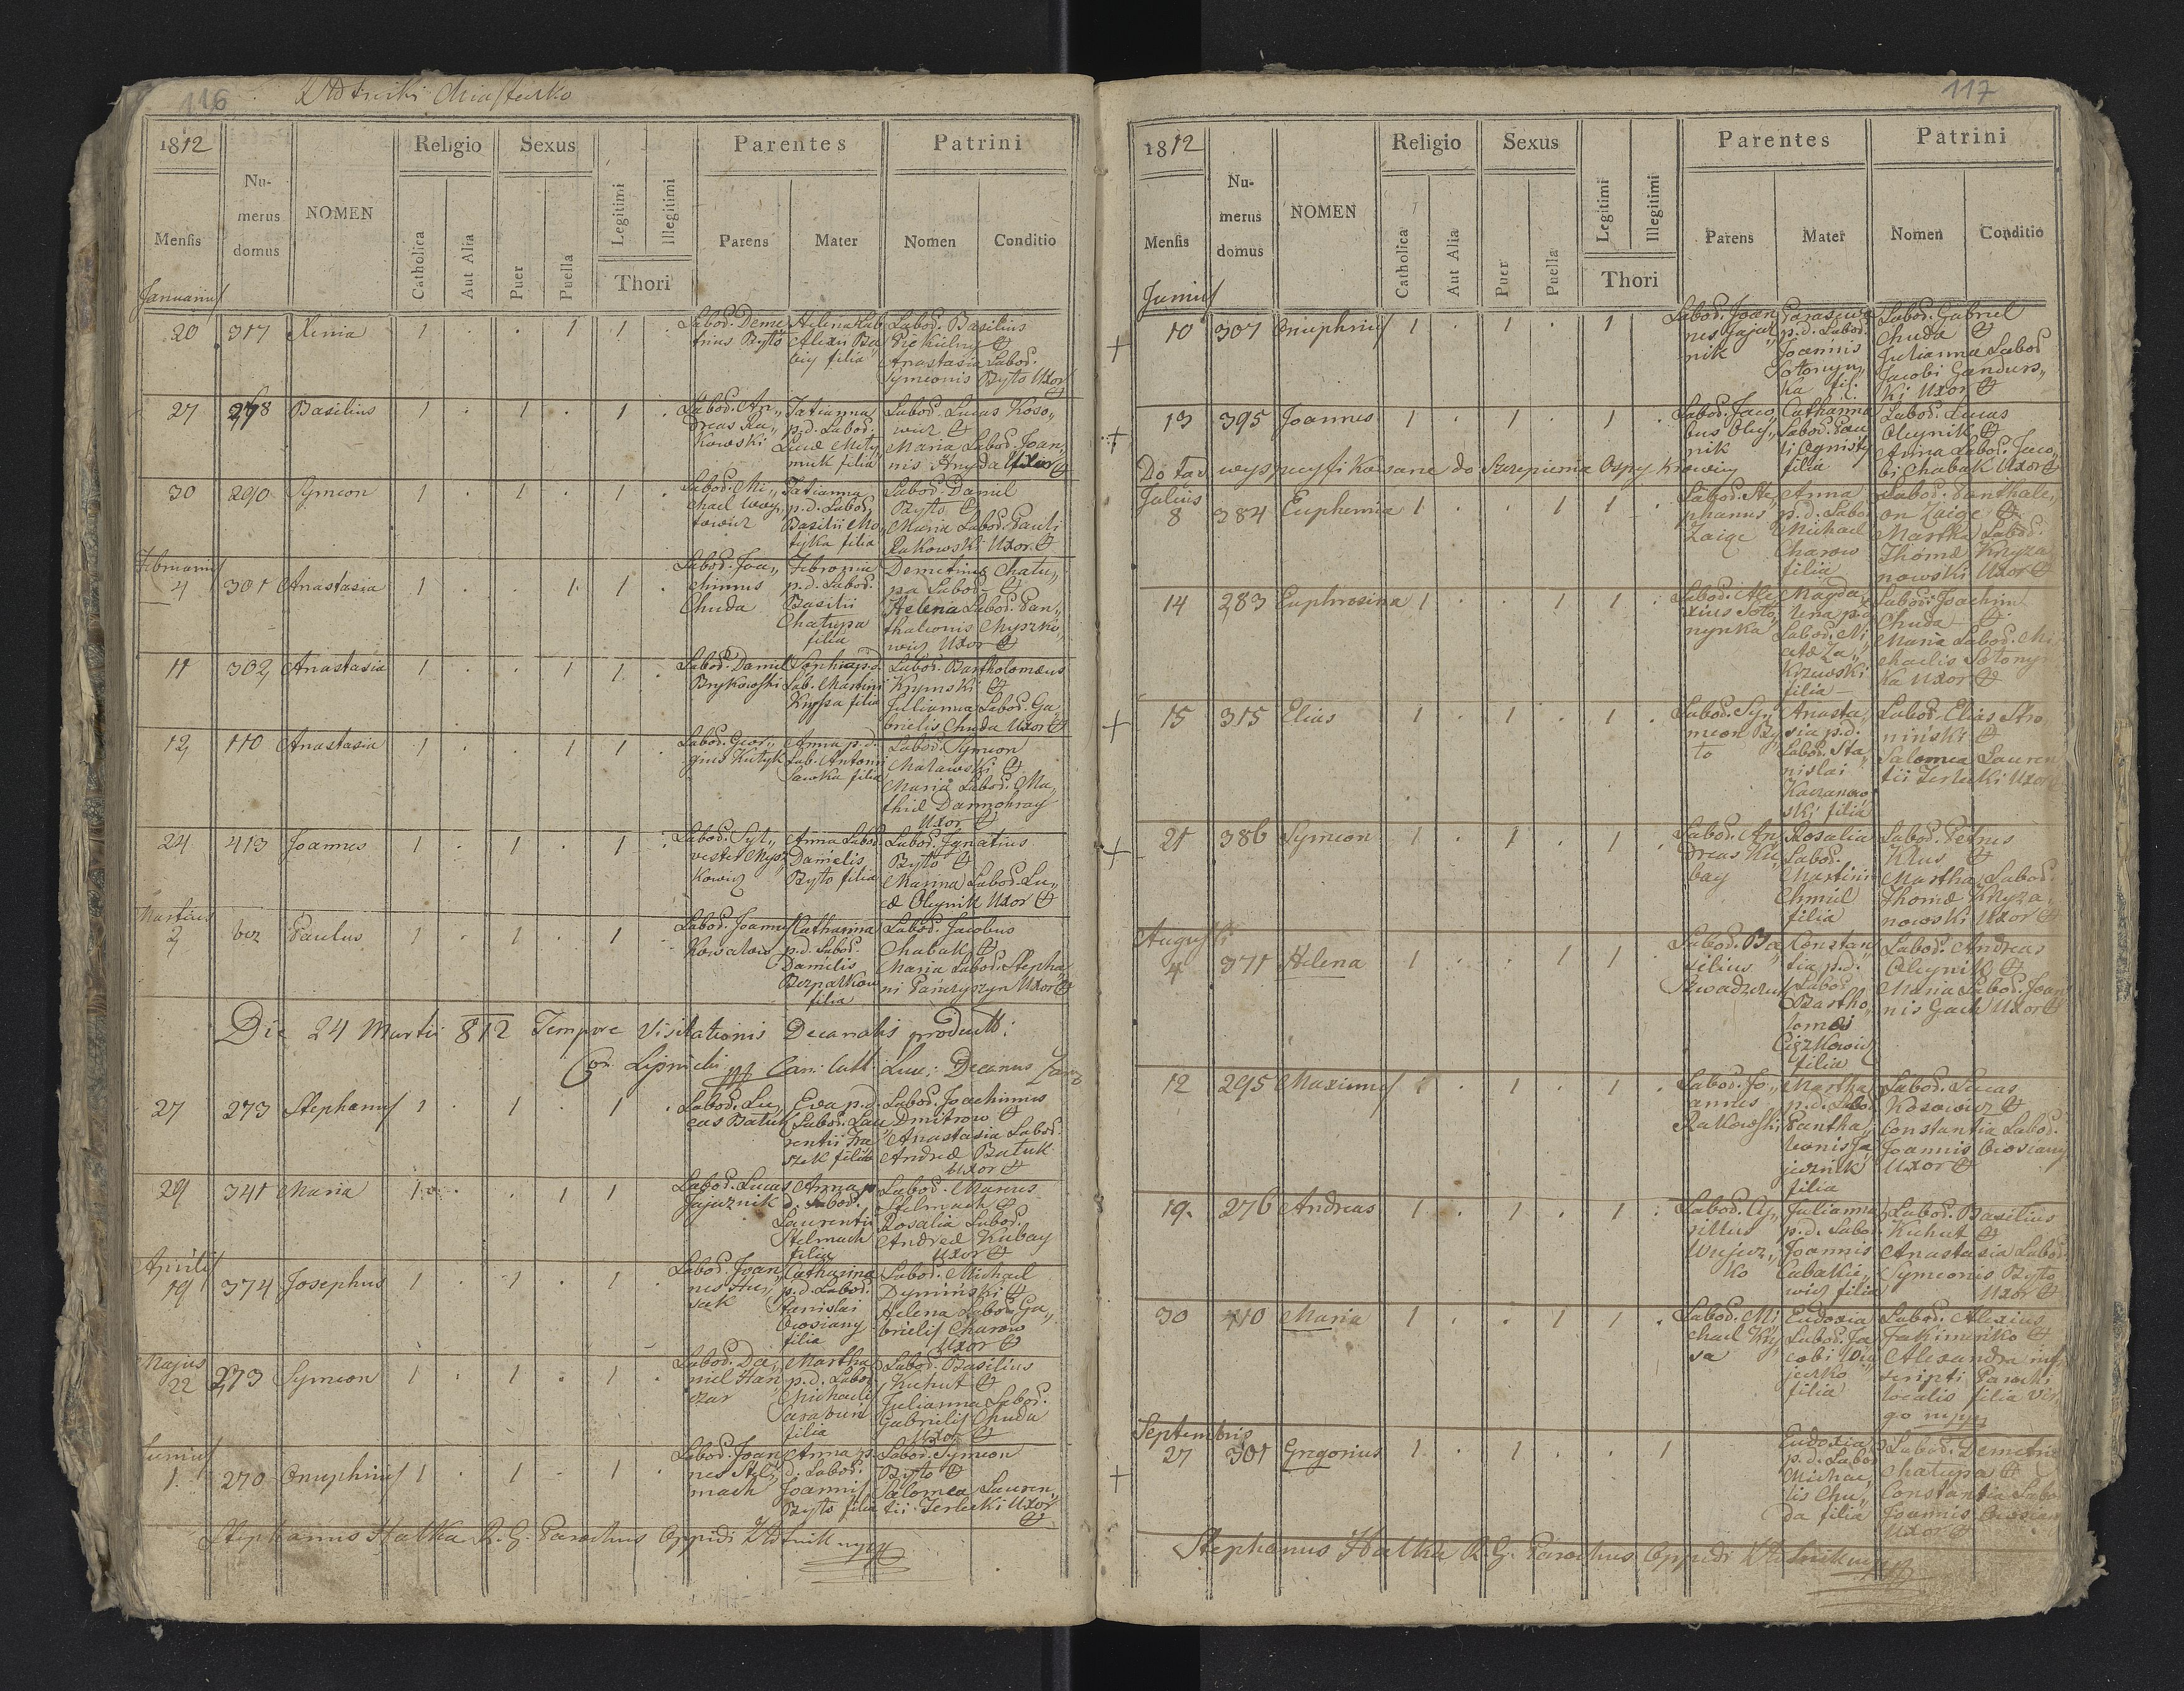 116
Miasteczko
1812
Numerus domus
NOMEN
Religio
Sexus
Legitimi
Illegitimi
Parentes
Patrini
Mensis
Catholica
Aut Alia
Puer
Puella
Thori
Parens
Mater
Nomen
Conditio
Januarius
20 317 Xenia 1 . . 1 1 .
Labod. Deme
trius Byto
Helena Lab
Alexii Ba
biy filia
Labod. Basilius
Anastasia Labod.
Symeonis Byto Uxor
27 278 Basilius 1 . 1 . 1 .
Labod. An,,
dreas Ra,,
kowski
Tatianna
p.d. Labod.
Lucæ
filia
Labod. Lucas Koso,,
wicz
Maria Labod. Joan,,
nis Hnyda Uxor
30 290 Symeon 1 . 1 . 1 .
Labod. Mi,,
chael
Tatianna
p.d. Labod.
Basilii
filia
Labod. Daniel
Byto
Maria Labod. Pauli
Rakowski Uxor
Februarius
4 301 Anastasia 1 . . 1 1 .
Labod. Joa,,
chimus
Chuda
Febronia
p.d. Labod.
Basilii
Chatupa
filia
Demetrius Chatu,,
pa Labod.
Helena Labod. Pan,,
thaleonis Myszko,,
wicz Uxor
11 302 Anastasia 1 . . 1 1 .
Labod. Daniel
Brykowski
Sophia p.d.
Lab. Martini
Kryssa filia
Labod. Bartholomæus
Krymski
Julianna Labod. Ga,,
brielis Chuda Uxor
12 110 Anastasia 1 . . 1 1 .
Labod. Geor,,
gius Kutyk
Anna p.d.
Lab. Antoni
Sawka filia
Labod. Symeon
Malawski
Maria Labod. Ma,,
thiæ Darmohray
Uxor
24 413 Joannes 1 . 1 . 1 .
Labod. Syl,,
vester Mysz
kowicz
Anna Labod.
Danielis
Byto filia
Labod. Ignatius
Byto
Marina Labod. Lu,,
cæ Oleynik Uxor
Martius
2 bez Paulus 1 . 1 . 1 .
Labod. Joannes
Kowalow
Catharina
p.d. Labod.
Danielis
Bezpalkow
filia
Labod. Jacobus
Chabak
Maria Labod. Stepha
ni Panczyszyn Uxor
Die 24 Martii 812 Tempore Visitationis Decanalis product:
Lipnicki mp Can: Catt: Decanus
27 273 Stephanus 1 . 1 . 1 .
Labod. Lu,,
cas Batuk
Eva p.d.
Labod. Lau
rentii
filia
Labod. Joachimus
Dmitrow
Anastasia Labod.
Andreæ Batuk
Uxor
29 341 Maria 1 . . 1 1
Labod. Lucas
Jajecznik
Anna p.
d. Labod.
Laurentii
Stelmach
filia
Labod. Marcus
Stelmach
Rosalia Labod.
Andreæ Kubay
Uxor
Aprilis
19 374 Josephus 1 . 1 . 1 .
Labod. Joan,,
nes
Catharina
p.d. Labod.
Stanislai
Owsiany
filia
Labod. Michael
Dyminski
Helena Labod. Ga,,
brielis Charow
Uxor
Majus
22 273 Symeon 1 . 1 . 1 .
Labod. Da,,
niel Han,,
czar
Martha
p.d. Labod.
Michaelis
filia
Labod. Basilius
Kuhut
Julianna Labod.
Gabrielis Chuda
Uxor
Junius
1. 270 Onuphrius 1 . 1 - 1 .
Labod. Joan
nes Stel,,
mach
Anna p.
d. Labod.
Joannis
Byto filia
Labod. Symeon
Byto
Salomea Lauren,,
tii Terlecki Uxor
Stephanus Hatka R. G. Parochus Oppidi mpp
117
1812
Numerus domus
NOMEN
Religio
Sexus
Legitimi
Illegitimi
Parentes
Patrini
Mensis
Catholica
Aut Alia
Puer
Puella
Thori
Parens
Mater
Nomen
Conditio
Junius
10 307 Onuphrius 1 . 1 . 1
Labod. Joan
nes Jajecz,,
nik
Paraszewa
p.d. Labod.
Joannis
Sotonyn,,
ka fil.
Labod. Gabriel
Chuda
Julianna Labod
Jacobi Gandurs,,
ki Uxor
13 395 Joannes 1 . 1 . 1 .
Labod. Jaco,,
bus Oley,,
nik
Catharina
Labod. Pau
li Ognisty
filia
Labod. Lucas
Oleynik
Anna Labod. Jaco,,
bi Chabak Uxor
Do tąd wyspecyfikowane do Szczepienia Ospy krowiey
Julius
8 384 Euphemia 1 . . 1 1 .
Labod. Ste,,
phanus
Zaige
Anna
p.d. Labod
Michael
Charow
filia
Labod. Panthale,,
on Zaige
Martha Labod.
Thomæ Kryza
nowski Uxor
14 283 Euphrosina 1 . . 1 1 .
Labod. Ale
xius Soto,,
nynka
Magda,,
lena p.d.
Labod. Ni
colæ Za,,
krzewski
filia
Labod. Joachim
Chuda
Maria Labod. Mi
chaelis Sotonyn
ka Uxor
15 315 Elias 1 . 1 . 1 .
Labod. Sy,,
meon By,,
to
Anasta,,
sia p.d.
Labod. Sta,,
nislai
Kaczanow
ski filia
Labod. Elias Stro,,
ninski
Salomea Lauren
tii Terlecki Uxor
21 386 Symeon 1 . 1 . 1 .
Labod. An
dreas Ku,,
bay
Rosalia
Labod.
Martini
Chmiel
filia
Labod. Petrus
Klus
Martha Labod.
Thomæ Kryza,,
nowski Uxor
Augusti
4 371 Helena 1 . . 1 1 .
Labod. Ba,,
silius
Constan,,
tia p.d.
Labod.
Bartho,,
lomæi
Ciszkowicz
filia
Labod. Andreas
Oleynik
Maria Labod. Joan
nis Gach Uxor
12 295 Maximus 1 . 1 . 1 .
Labod. Jo,,
annes
Rakowski
Martha
p.d. Labod
Pantha,,
leonis Ja,,
jecznik
filia
Labod. Lucas
Kosowicz
Constantia Labod.
Joannis Owsiany
Uxor
19. 276 Andreas 1 . 1 . 1 .
Labod. Cy,,
rillus
Wujcz,,
ko
Julianna
p.d. Labod.
Joannis
filia
Labod. Basilius
Kuhut
Anastasia Labod.
Symeonis Byto
Uxor
30 410 Maria 1 . . 1 1 .
Labod. Mi
chael Kry,,
sa
Eudoxia
Labod. Ja
cobi
filia
Labod. Alexius
Jakimenko
Alexandra inf
scripti Parochi
localis filia Vir,,
go mpp
Septembris
27 301 Gregorius 1 . 1 . . 1
Eudoxia
p.d. Labod
Michae,,
lis Chu,,
da filia
Labod. Demetrius
Chatupa
Constantia Labod
Joannis Owsiany
Uxor
Stephanus Hatka R. G. Parochus Oppidi